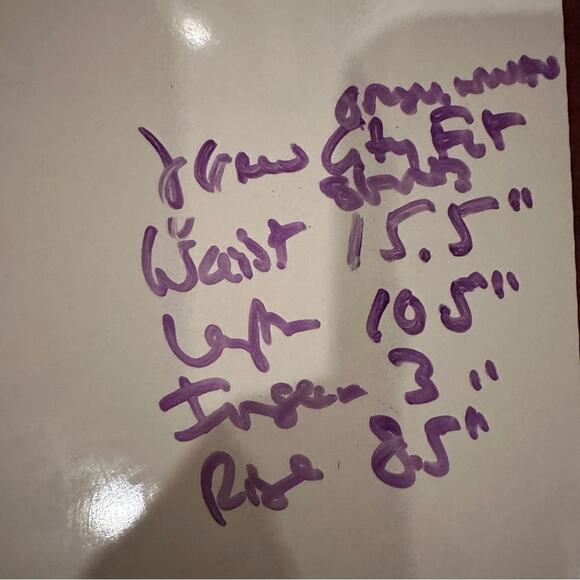 J Crew City Fit
Shorts
Waist 15.5"
Length 10.5"
Inseam 3"
Rise 8.5"